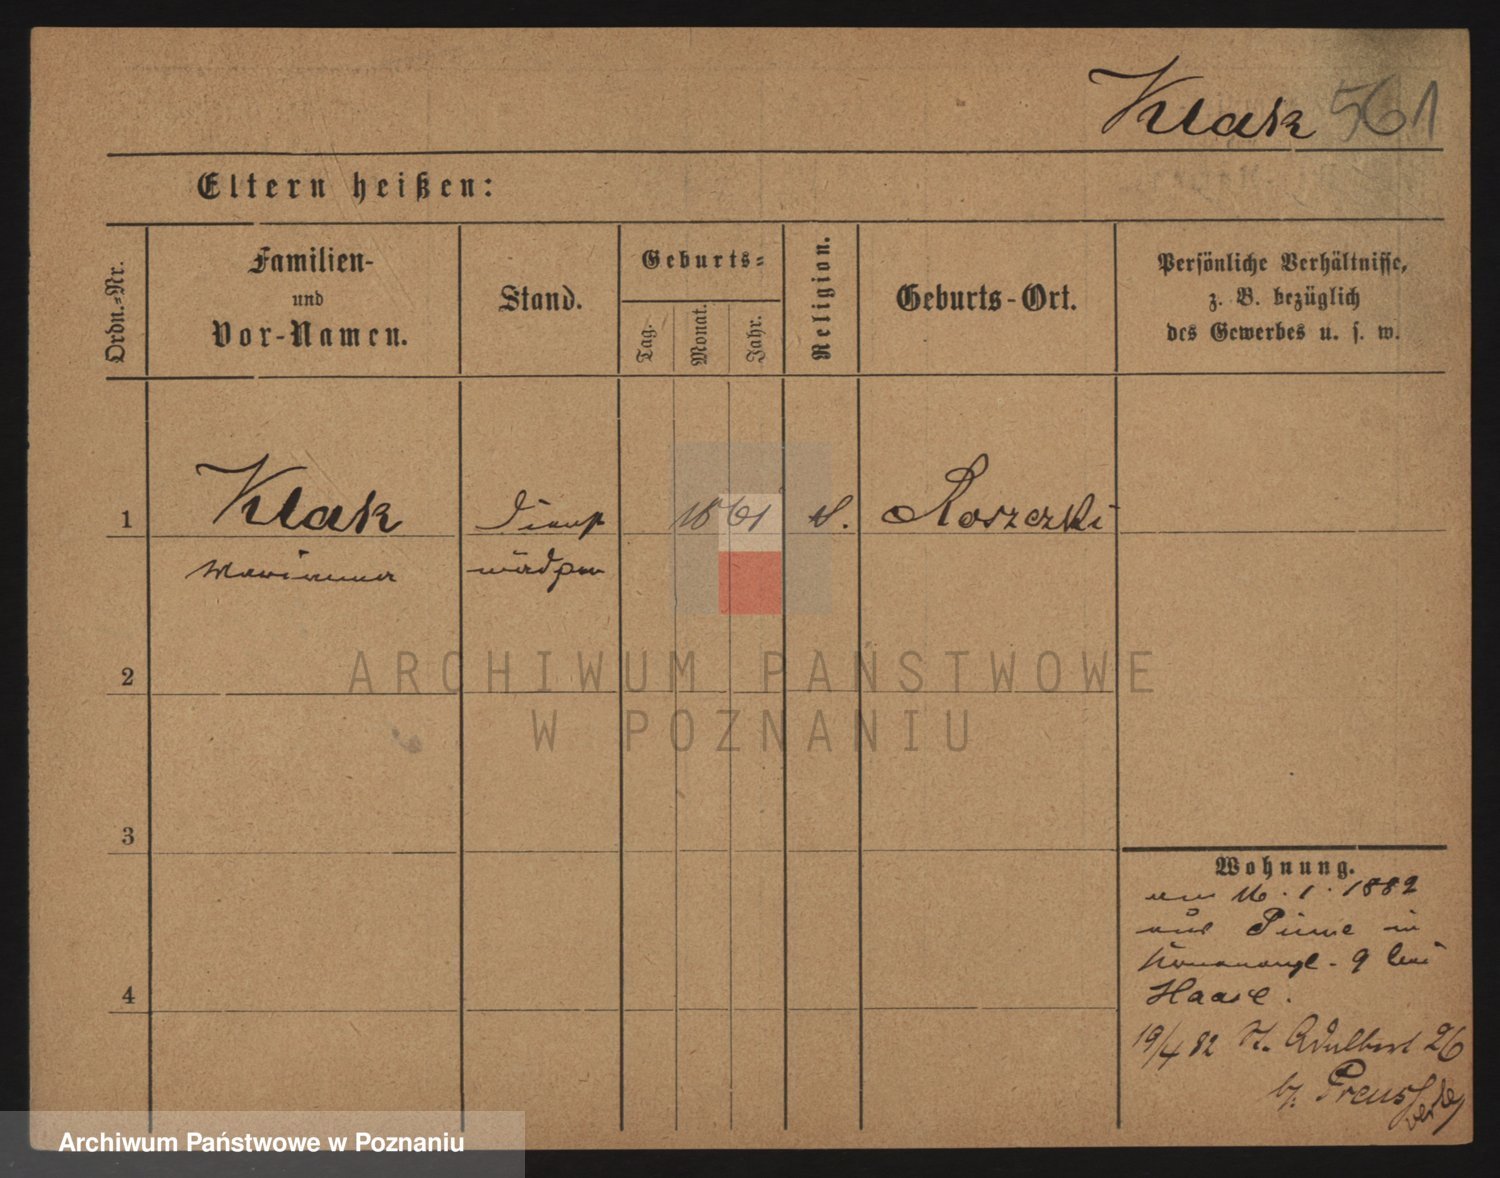 Klak 561
Eltern heißen:
Ordn.-Nr.
Familien-
und
Vor-Namen.
Stand.
Geburts-
Tag.
Monat.
Jahr.
Religion.
Geburts-Ort.
Persönliche Verhältnisse,
z. B. bezüglich
des Gewerbes u. s. w.
1
Klak
Marianna
Dienst
mädchen
1861
Roszczki
2
3
4
Wohnung.
am 16.1.1882
aus Pinne in
9 bei
Haase.
19/4 82 St. Adalbert 26
b/. Preus
ARCHIWUM PAŃSTWOWE
W POZNANIU
Archiwum Państwowe w Poznaniu